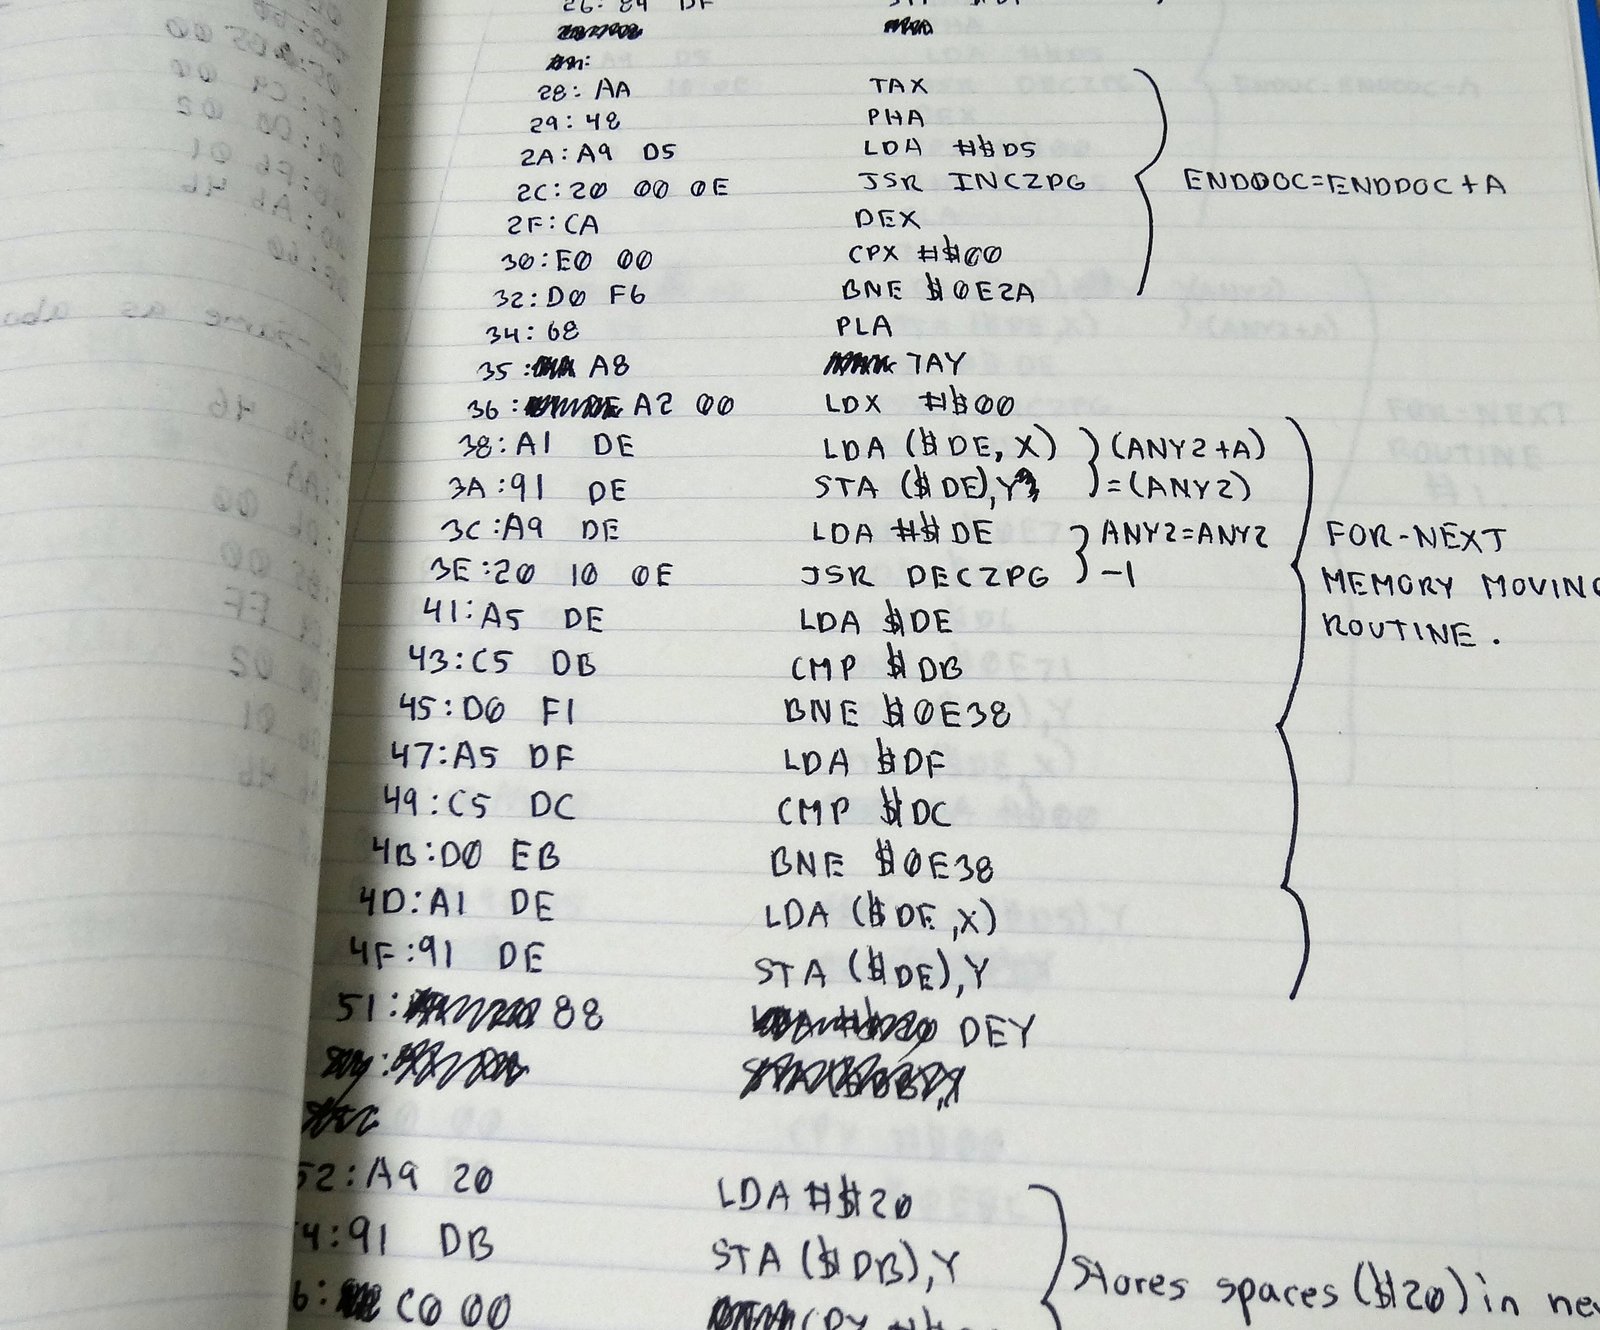 26: 84 DF
28: AA TAX
29: 48 PHA
2A: A9 D5 LDA #$D5
2C: 20 00 0E JSR INCZPG ENDDOC=ENDDOC+A
2F: CA DEX
30: E0 00 CPX #$00
32: D0 F6 BNE $0E2A
34: 68 PLA
35: A8 TAY
36: A2 00 LDX #$00
38: A1 DE LDA ($DE, X) (ANY2+A)
3A: 91 DE STA ($DE),Y =(ANY2)
3C: A9 DE LDA #$DE ANY2=ANY2 FOR-NEXT
3E: 20 10 0E JSR DECZPG -1 MEMORY MOVING
41: A5 DE LDA $DE ROUTINE.
43: C5 DB CMP $DB
45: D0 F1 BNE $0E38
47: A5 DF LDA $DF
49: C5 DC CMP $DC
4B: D0 EB BNE $0E38
4D: A1 DE LDA ($DE,X)
4F: 91 DE STA ($DE),Y
51: 88 DEY
52: A9 20 LDA #$20
4: 91 DB STA ($DB),Y
6: C0 00 CPY Stores spaces ($20) in